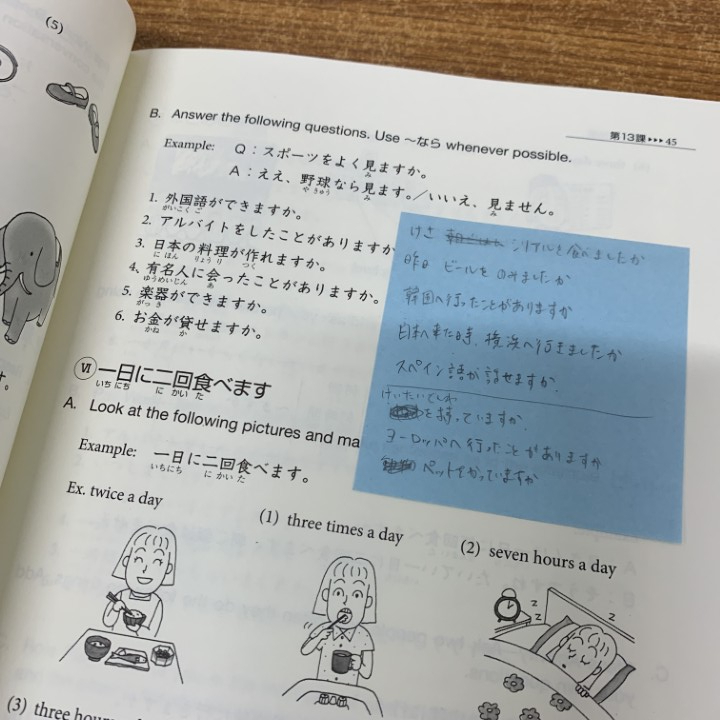 (5)
第13課▸▸▸ 45
B. Answer the following questions. Use 〜なら whenever possible.
Example: Q：スポーツをよく見ますか。
み
A：ええ、野球なら見ます。／いいえ、見ません。
やきゅう み み
1. 外国語ができますか。
がいこくご
2. アルバイトをしたことがありますか
3. 日本の料理が作れますか。
にほん りょうり つく
4. 有名人に会ったことがありますか。
ゆうめいじん あ
5. 楽器ができますか。
がっき
6. お金が貸せますか。
かね か
けさ シリアルを食べましたか
昨日 ビールを のみましたか
韓国へ行ったことがありますか
日本へ来た時、横浜へ行きましたか
スペイン語が話せますか。
けいたいでんわ
を持っていますか。
ヨーロッパへ行ったことがありますか
ペットをかっていますか
Ⅵ 一日に二回食べます
いちにち に かい た
A. Look at the following pictures and ma
Example: 一日に二回食べます。
いちにち に かい た
Ex. twice a day
(1) three times a day
(2) seven hours a day
z z z
(3) three hou
す。